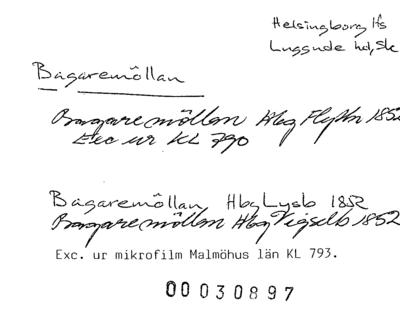 Helsingborg lfs
Luggude hd, Sk
Bagaremöllan
Bagaremöllan Hbg Flyttn 1852
Exc ur KL 790
Bagaremöllan Hbg Lysb 1852
Bagaremöllan Hbg Vigselb 1852
Exc. ur mikrofilm Malmöhus län KL 793.
00030897